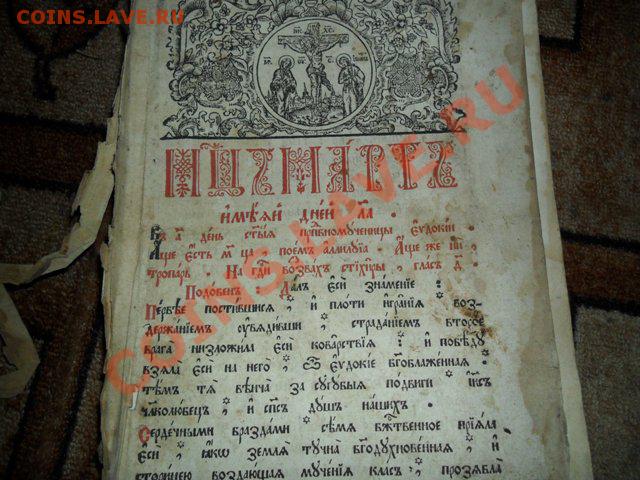 COINS.LAVE.RU
мц҃ъ ма́ртъ
и҆мѣ́ѧй дне́й л҃а .
Въ а҃ де́нь ст҃ы́ѧ прпⷣбномученицы Е҆ѵдокі́и
А҆ще є҆сть поемъ а҆ллилꙋ́їа . А҆ще же
тропарь . На гдⷭ҇и во́звахъ стїхи́ры , гла́съ д҃ .
Подо́бенъ : Да́лъ є҆сѝ знаменїе :
Пе́рвѣе пости́вшисѧ и҆ пло́ти и҆гра́нїѧ воз-
держа́нїемъ ᲂу҆вѧди́вши , страда́нїемъ второе
врага̀ низложи́ла є҆сѝ кова́рствїѧ : и҆ побѣ́дꙋ
взѧла̀ є҆сѝ на него̀ , Е҆ѵдокі́е бг҃облаже́ннаѧ :
тѣ́мъ тѧ̀ вѣнча̀ за сꙋгꙋ́быѧ по́двиги і҆и҃съ
чл҃колю́бецъ , и҆ сп҃съ дꙋ́шъ на́шихъ .
Серде́чными бразда́ми сѣ́мѧ бж҃твенное прїѧ́ла
є҆сѝ , ꙗ҆́кѡ землѧ̀ тꙋ́чна бг҃одꙋхнове́ннаѧ , и҆
стори́цею воздаю́щаѧ мꙋче́нїѧ кла́съ , прозѧбла̀
COINS.LAVE.RU